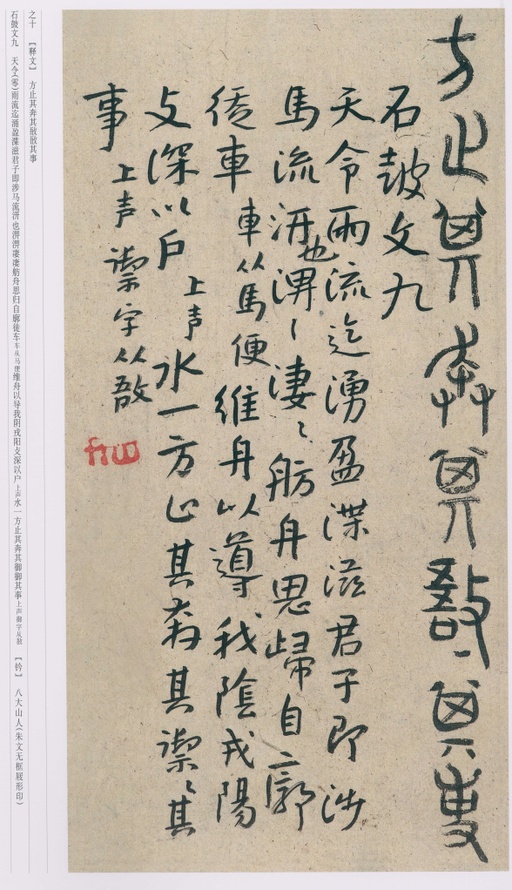 方止其奔其敔〻其事
石鼓文九
天令雨流迄湧盈渫滋君子即涉
馬流汧也淠〻淒〻舫舟思歸自廓
徒車 車从馬 便維舟以導我陰戎陽
攴深以户 上声 水一方止其奔其禦〻其
事 上声 禦字从敔
之十 【释文】 方止其奔其敔敔其事
石鼓文九 天令(零)雨流迄涌盈渫滋君子即涉马流汧也淠淠凄凄舫舟思归自廓徒车车从马便维舟以导我阴戎阳支深以户上声水一方止其奔其御御其事上声御字从敔 【钤】 八大山人(朱文无框屐形印)